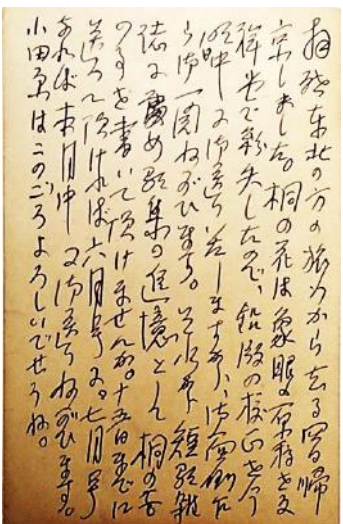 東北の方の旅行から去る四日帰
京しました。桐の花は象眼の原稿を
で紛失したので、の校正を今
明中に御送り致しますから、御面倒乍
ら御一閲ねがひます。それから短歌雑
誌に歌集の追憶として桐の花
の事を書いて頂けませんか。十五日までに
送つて頂ければ六月号に。七月号
なれば本月中に御送りねがひます。
小田原はこのごろよろしいでせうね。